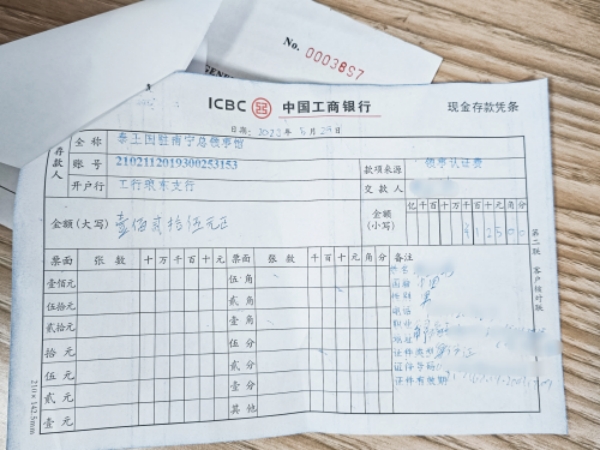 No. 0003857
ICBC 中国工商银行 现金存款凭条
日期: 2023年5月29日
存款人 全称 泰王国驻南宁总领事馆
账号 2102112019300253153 款项来源 领事认证费
开户行 工行琅东支行 交款人
金额(大写) 壹佰贰拾伍元正 金额(小写) 亿千百十万千百十元角分
¥12500
票面 张数 十万千百十元 票面 张数 千百十元角分 备注
壹佰元 伍角 姓名
伍拾元 贰角 国籍 中国
贰拾元 壹角 性别 男
电话
拾元 伍分 职业
地址
伍元 贰分 证件类型 身份证
证件号码
贰元 壹分 证件有效期
壹元 其他
第二联 客户核对联
210×142.5mm